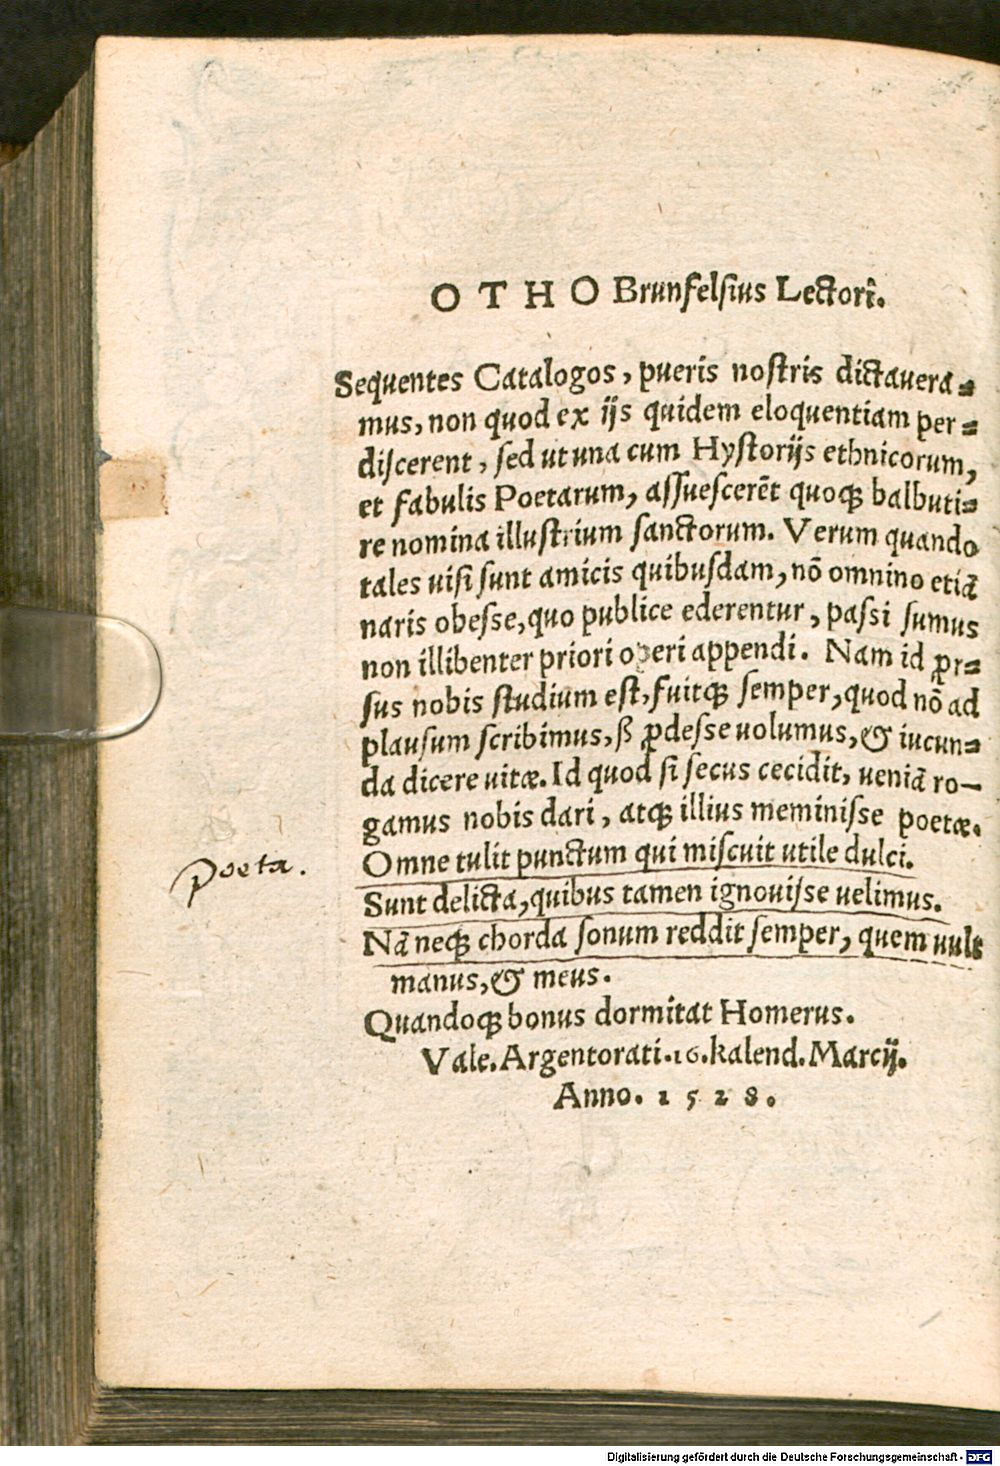 OTHO Brunfelsius Lectori.
Sequentes Catalogos, pueris nostris dictauera⸗
mus, non quod ex ijs quidem eloquentiam per⸗
discerent, sed ut una cum Hystorijs ethnicorum,
et fabulis Poetarum, assuescerēt quoqꝫ balbuti⸗
re nomina illustrium sanctorum. Verum quando
tales uisi sunt amicis quibusdam, nō omnino etiā
naris obesse, quo publice ederentur, passi sumus
non illibenter priori operi appendi. Nam id ꝓr⸗
sus nobis studium est, fuitqꝫ semper, quod nō ad
plausum scribimus, ß ꝓdesse uolumus, & iucun⸗
da dicere uitæ. Id quod si secus cecidit, ueniā ro-
gamus nobis dari, atqꝫ illius meminisse poetæ.
poeta.
Omne tulit punctum qui miscuit utile dulci.
Sunt delicta, quibus tamen ignouisse uelimus.
Nā neqꝫ chorda sonum reddit semper, quem uult
manus, & meus.
Quandoqꝫ bonus dormitat Homerus.
Vale. Argentorati. 16. kalend. Marcij.
Anno. 1528.
Digitalisierung gefördert durch die Deutsche Forschungsgemeinschaft - DFG